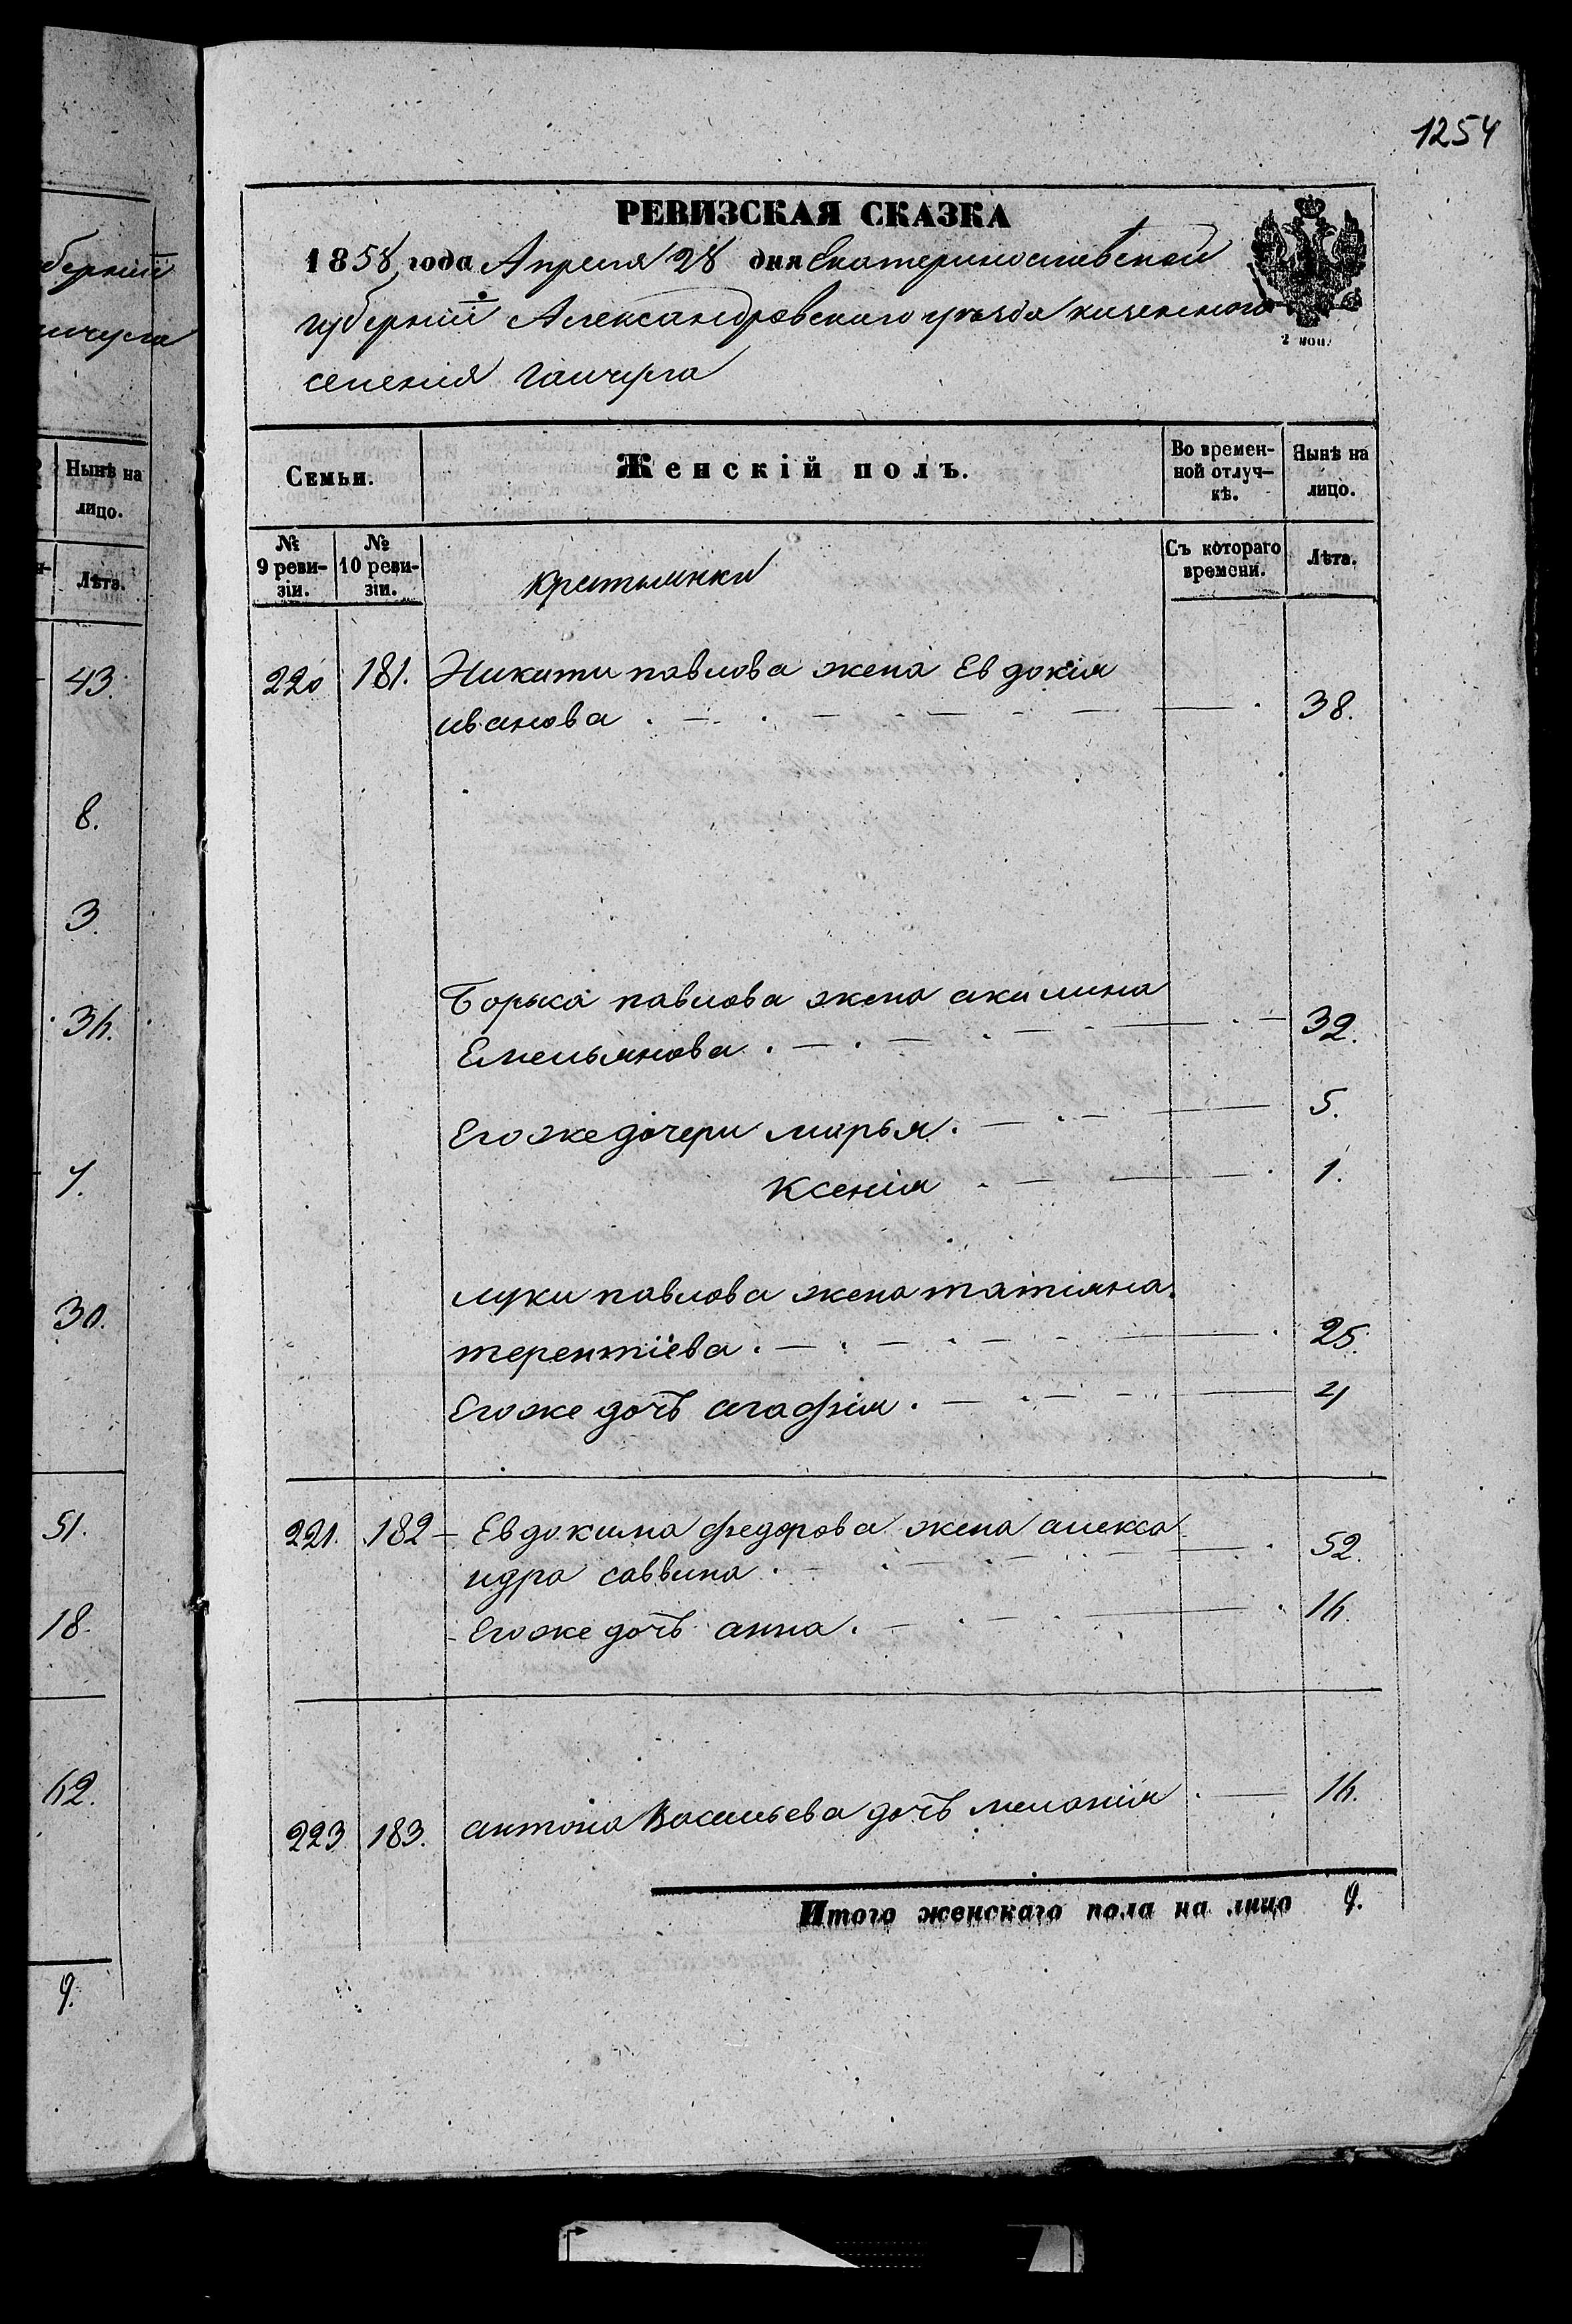 1254
РЕВИЗСКАЯ СКАЗКА
1858 года Апреля 28 дня Екатеринославской
губерніи Александровского уезда казенного
селенія Гайчула
2 коп.
Семьи.
Женскій полъ.
Во времен-
ной отлуч-
кѣ.
Нынѣ на
лицо.
№
9 реви-
зіи.
№
10 реви-
зіи.
крестьянки
Съ котораго
времени.
Лѣта.
220 181. Никиты павлова жена Евдокія
иванова 38.
Борыса павлова жена акилина
Емельянова 32.
Егоже дочери марья. 5.
Ксенія 1.
луки павлова жена татіяна
терентіева. 25.
Егоже дочь агафія. 4
221. 182 Евдокима федорова жена алекса
ндра саввина. 52.
Егоже дочь анна. 16.
223 183. антона Васильева дочь меланія 16.
Итого женскаго пола на лицо 9.
берніи
Нынѣ на
лицо.
Лѣта.
43.
8.
3.
36.
7.
30.
51.
18.
62.
9.